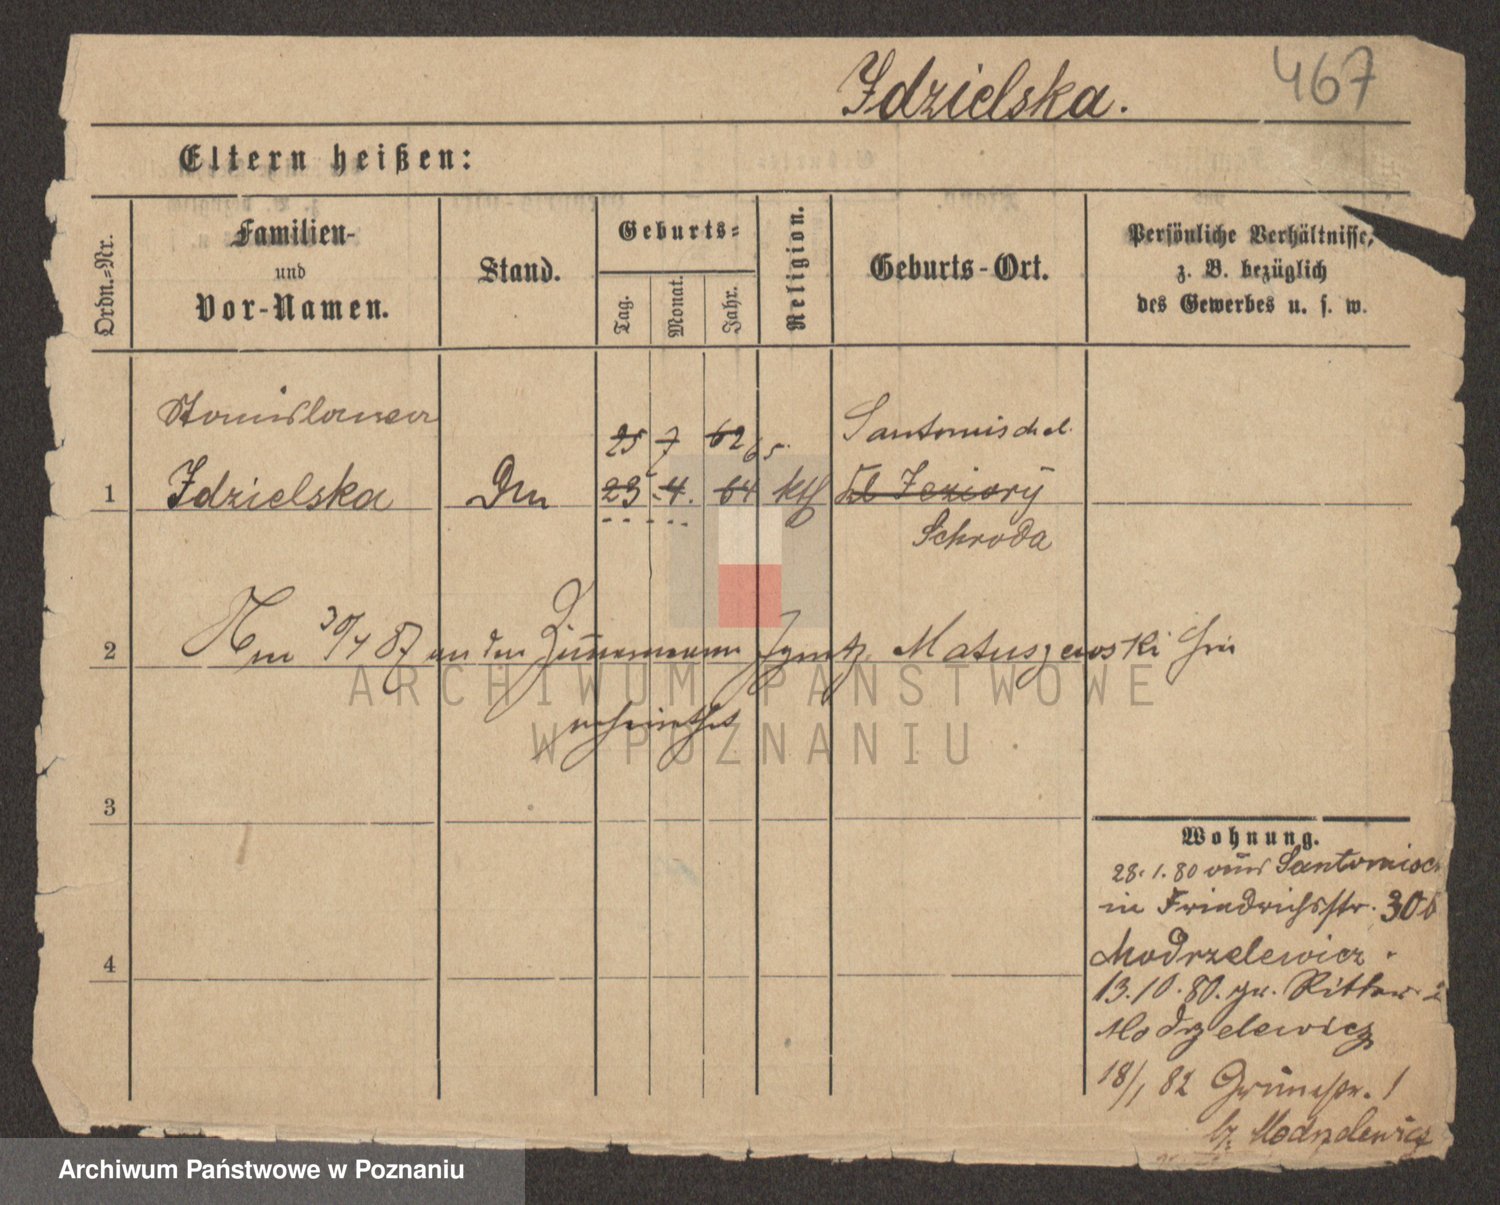 Idzielska.
467
Eltern heißen:
Ordn.-Nr.
Familien-
und
Vor-Namen.
Stand.
Geburts-
Tag.
Monat.
Jahr.
Religion.
Geburts-Ort.
Persönliche Verhältnisse,
z. B. bezüglich
des Gewerbes u. s. w.
Stanislawa
25 7 62 65.
Santomischel
1 Idzielska 23 4. 64 kth Kl Jeziory
Schroda
2 Am 30/4 87 an den Zimmermann Ignatz Matuszewski hier
verheirathet
ARCHIWUM PAŃSTWOWE
W POZNANIU
3
4
Wohnung.
28.1.80 aus Santomisch
in Friedrichsstr. 30b
Modrzelewicz
13.10.80. gr. Ritter 2
Modrzelewicz
18/1 82 Grünestr. 1
bz. Modrzelewicz
Archiwum Państwowe w Poznaniu